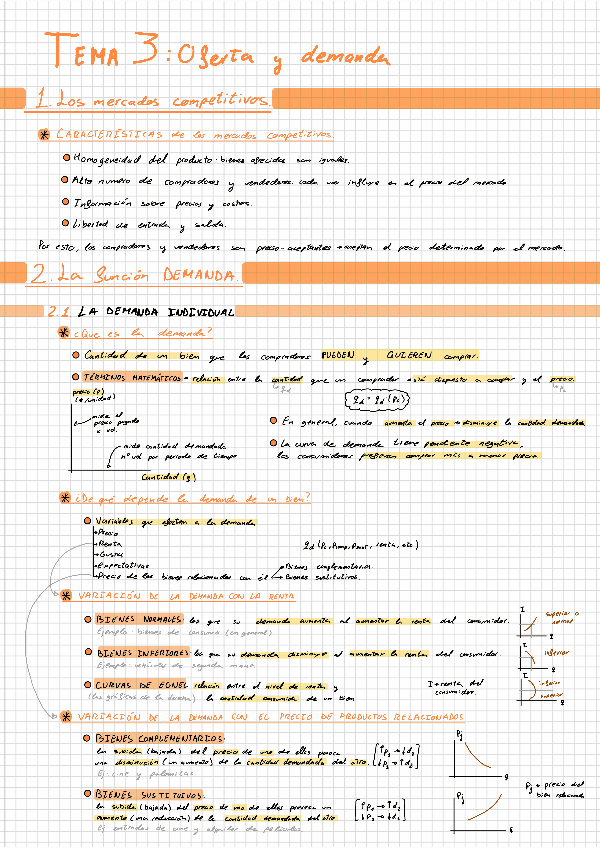 TEMA 3: Oferta y demanda
1. Los mercados competitivos.
CARACTERÍSTICAS de los mercados competitivos.
Homogeneidad del producto: bienes ofrecidos son iguales.
Alto numero de compradores y vendedores. cada uno influye en el precio del mercado
Información sobre precios y costes.
Libertad de entrada y salida.
Por esto, los compradores y vendedores son precio-aceptantes → aceptan el precio determinado por el mercado.
2. La función DEMANDA.
2.1 LA DEMANDA INDIVIDUAL
¿Que es la demanda?
Cantidad de un bien que los compradores PUEDEN y QUIEREN comprar.
TERMINOS MATEMÁTICOS → relación entre la cantidad que un comprador está dispuesto a comprar y el precio.
precio (p)
(€/unidad)
mide el
precio pagado
x ud.
mide cantidad demandada
nº ud por periodo de tiempo
Cantidad (q)
En general, cuando aumenta el precio → disminuye la cantidad demandada
La curva de demanda tiene pendiente negativa,
los consumidores prefieren comprar más a menor precio
¿De qué depende la demanda de un bien?
Variables que afectan a la demanda
Precio
Renta
Gustos
Expectativas
Precio de los bienes relacionados con él
Bienes complementarios.
Bienes sustitutivos.
VARIACIÓN DE LA DEMANDA CON LA RENTA
BIENES NORMALES los que su demanda aumenta al aumentar la renta del consumidor.
Ejemplo: bienes de consumo (en general)
BIENES INFERIORES los que su demanda disminuye al aumentar la renta del consumidor.
Ejemplo: vehiculos de segunda mano.
CURVAS DE EGNEL relación entre el nivel de renta y
la cantidad consumida de un bien
I → renta del
consumidor.
superior o
normal
inferior
inferior
superior
VARIACIÓN DE LA DEMANDA CON EL PRECIO DE PRODUCTOS RELACIONADOS
BIENES COMPLEMENTARIOS.
La subida (bajada) del precio de uno de ellos provoca
una disminución (un aumento) de la cantidad demandada del otro.
Ej: cine y palomitas.
BIENES SUSTITUTIVOS.
La subida (bajada) del precio de uno de ellos provoca un
aumento (una reducción) de la cantidad demandada del otro
Ej: entradas de cine y alquiler de películas.
Pj → precio del
bien relacionado